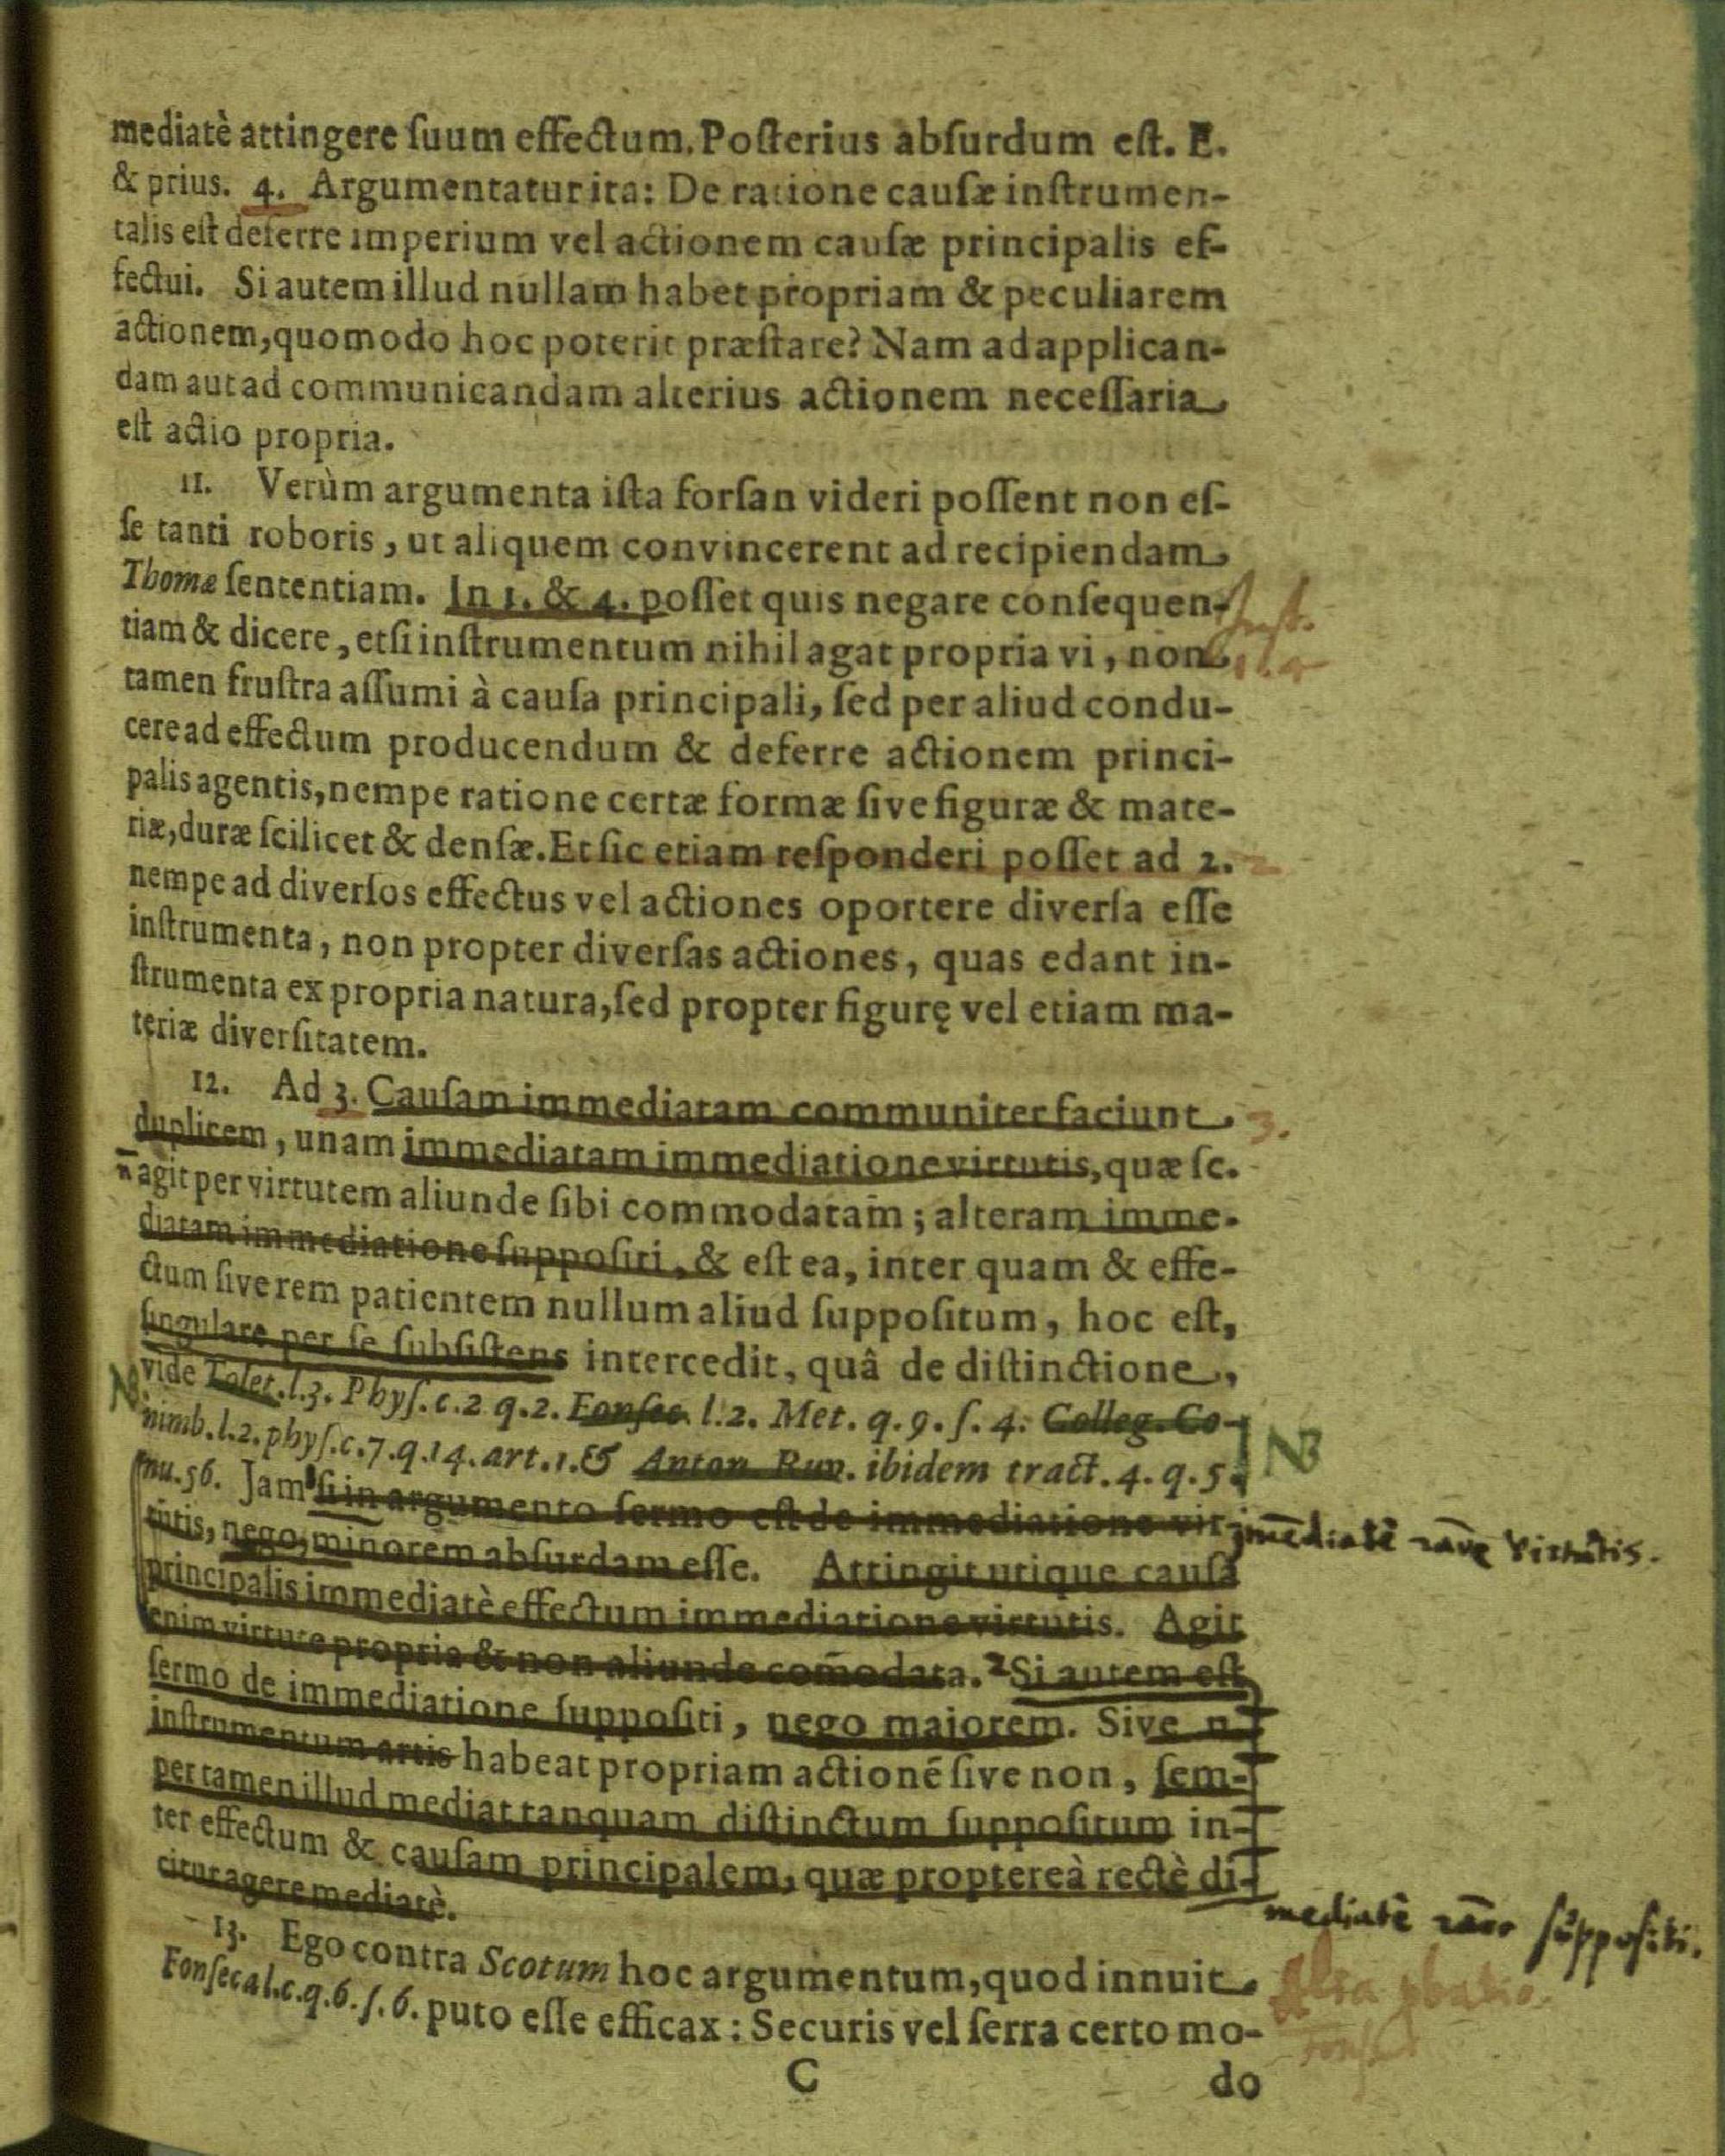 mediatè attingere ſuum effectum. Poſterius abſurdum eſt. E.
& prius. 4. Argumentatur ita: De ratione cauſæ inſtrumen-
talis eſt deferre imperium vel actionem cauſæ principalis ef-
fectui. Si autem illud nullam habet propriam & peculiarem
actionem, quomodo hoc poterit præſtare? Nam ad applican-
dam aut ad communicandam alterius actionem neceſſaria
eſt actio propria.
11. Verùm argumenta iſta forſan videri poſſent non eſ-
ſe tanti roboris, ut aliquem convincerent ad recipiendam
Thomæ ſententiam. In 1. & 4. poſſet quis negare conſequen-
tiam & dicere, etſi inſtrumentum nihil agat propria vi, non
tamen fruſtra aſſumi à cauſa principali, ſed per aliud condu-
cere ad effectum producendum & deferre actionem princi-
palis agentis, nempe ratione certæ formæ ſive figuræ & mate-
riæ, duræ ſcilicet & denſæ. Et ſic etiam reſponderi poſſet ad 2.
2
nempe ad diverſos effectus vel actiones oportere diverſa eſſe
inſtrumenta, non propter diverſas actiones, quas edant in-
ſtrumenta ex propria natura, ſed propter figurę vel etiam ma-
teriæ diverſitatem.
12. Ad 3. Cauſam immediatam communiter faciunt
3.
duplicem, unam immediatam immediatione virtutis, quæ ſc.
n̄ agit per virtutem aliunde ſibi commodatam; alteram imme-
diatam immediatione ſuppoſiti, & eſt ea, inter quam & effe-
ctum ſive rem patientem nullum aliud ſuppoſitum, hoc eſt,
ſingulare per ſe ſubſiſtens intercedit, quâ de diſtinctione,
vide Tolet. l. 3. Phyſ. c. 2 q. 2. Fonſec. l. 2. Met. q. 9. ſ. 4. Colleg. Co-
nimb. l. 2. phyſ. c. 7. q. 14. art. 1. & Anton Ruv. ibidem tract. 4. q. 5.
NB
nu. 56. Jam 1 ſi in argumento ſermo eſt de immediatione vir-
im̄ediatè rāne virtutis.
tutis, nego, minorem abſurdam eſſe. Attingit utique cauſa
principalis immediatè effectum immediatione virtutis. Agit
enim virtute propria & non aliunde com̄odata. 2 Si autem eſt
ſermo de immediatione ſuppoſiti, nego maiorem. Sive n.
inſtrumentum artis habeat propriam actionē ſive non, ſem-
per tamen illud mediat tanquam diſtinctum ſuppoſitum in-
ter effectum & cauſam principalem, quæ propterea rectè di-
citur agere mediatè.
mediatè rāne ſuppoſiti.
13. Ego contra Scotum hoc argumentum, quod innuit
Alia
Fonſeca l. c. q. 6. ſ. 6. puto eſſe efficax: Securis vel ſerra certo mo-
C do